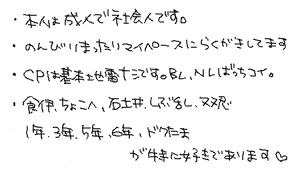 ・本人は成人で社会人です。
・のんびりまったりマイペースにらくがきしてます
・CPは基本土也雷ナシです。BL、NLばっちコイ。
・食伊、ちょこへ、石土井、しぶ、双忍
1年、3年、5年、6年、ドクたま
が特に好きであります♡